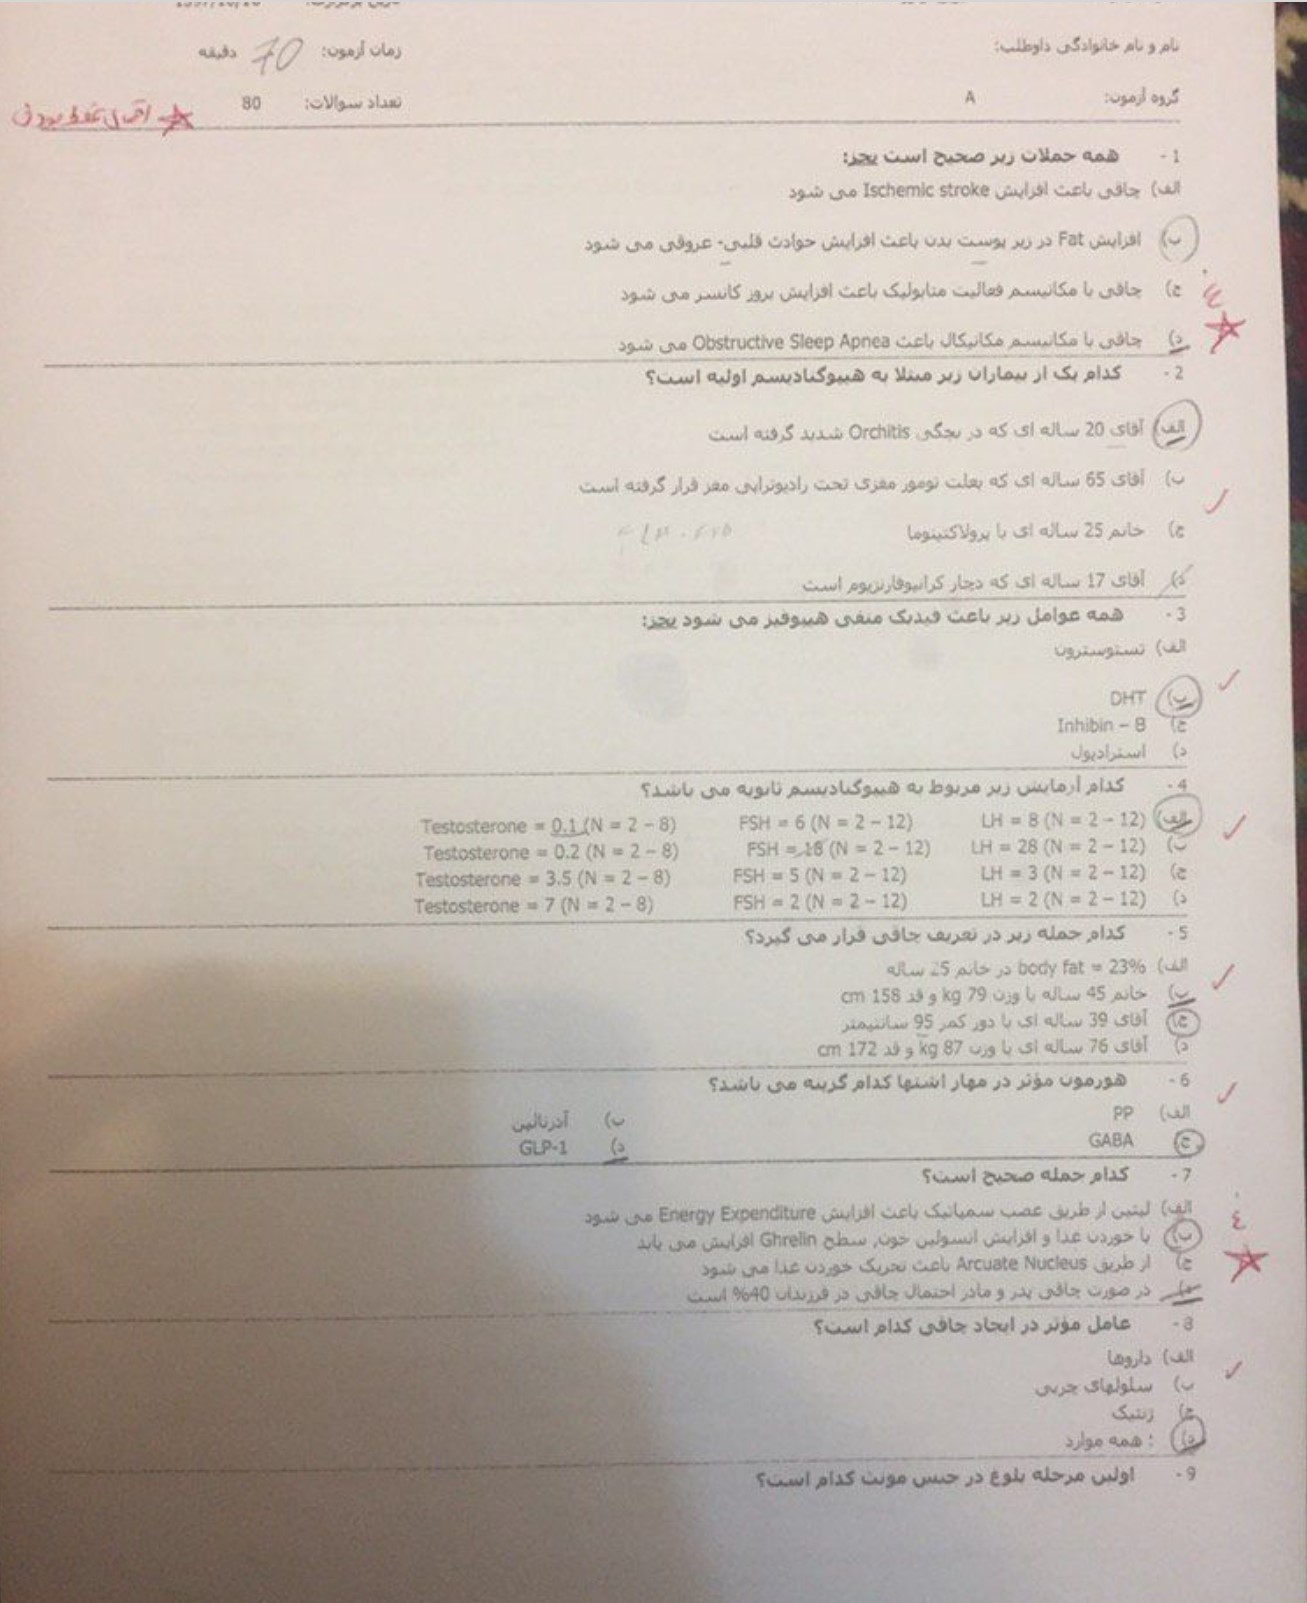 نام و نام خانوادگی داوطلب:
زمان آزمون: 70 دقیقه
گروه آزمون: A
تعداد سوالات: 80
1 - همه جملات زیر صحیح است بجز:
الف) چاقی باعث افزایش Ischemic stroke می شود
ب) افزایش Fat در زیر پوست بدن باعث افزایش حوادث قلبی- عروقی می شود
ج) چاقی با مکانیسم فعالیت متابولیک باعث افزایش بروز کانسر می شود
د) چاقی با مکانیسم مکانیکال باعث Obstructive Sleep Apnea می شود
2 - کدام یک از بیماران زیر مبتلا به هیپوگنادیسم اولیه است؟
الف) آقای 20 ساله ای که در بچگی Orchitis شدید گرفته است
ب) آقای 65 ساله ای که بعلت تومور مغزی تحت رادیوتراپی مغز قرار گرفته است
ج) خانم 25 ساله ای با پرولاکتینوما
د) آقای 17 ساله ای که دچار کرانیوفارنژیوم است
3 - همه عوامل زیر باعث فیدبک منفی هیپوفیز می شود بجز:
الف) تستوسترون
ب) DHT
ج) Inhibin – B
د) استرادیول
4 - کدام آزمایش زیر مربوط به هیپوگنادیسم ثانویه می باشد؟
الف) LH = 8 (N = 2 – 12) FSH = 6 (N = 2 – 12) Testosterone = 0.1 (N = 2 – 8)
ب) LH = 28 (N = 2 – 12) FSH = 18 (N = 2 – 12) Testosterone = 0.2 (N = 2 – 8)
ج) LH = 3 (N = 2 – 12) FSH = 5 (N = 2 – 12) Testosterone = 3.5 (N = 2 – 8)
د) LH = 2 (N = 2 – 12) FSH = 2 (N = 2 – 12) Testosterone = 7 (N = 2 – 8)
5 - کدام جمله زیر در تعریف چاقی قرار می گیرد؟
الف) body fat = 23% در خانم 25 ساله
ب) خانم 45 ساله با وزن 79 kg و قد 158 cm
ج) آقای 39 ساله ای با دور کمر 95 سانتیمتر
د) آقای 76 ساله ای با وزن 87 kg و قد 172 cm
6 - هورمون مؤثر در مهار اشتها کدام گزینه می باشد؟
الف) PP ب) آدرنالین
ج) GABA د) GLP-1
7 - کدام جمله صحیح است؟
الف) لپتین از طریق عصب سمپاتیک باعث افزایش Energy Expenditure می شود
ب) با خوردن غذا و افزایش انسولین خون, سطح Ghrelin افزایش می یابد
ج) از طریق Arcuate Nucleus باعث تحریک خوردن غذا می شود
د) در صورت چاقی پدر و مادر احتمال چاقی در فرزندان 40% است
8 - عامل مؤثر در ایجاد چاقی کدام است؟
الف) داروها
ب) سلولهای چربی
ج) ژنتیک
د) : همه موارد
9 - اولین مرحله بلوغ در جنس مونث کدام است؟